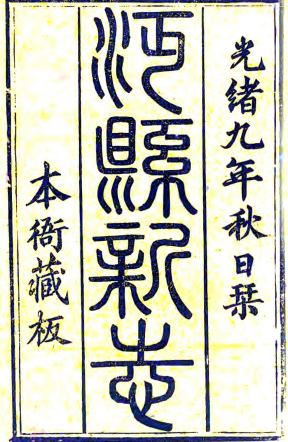 光緒九年秋日栞
沔縣新志
本衙藏板